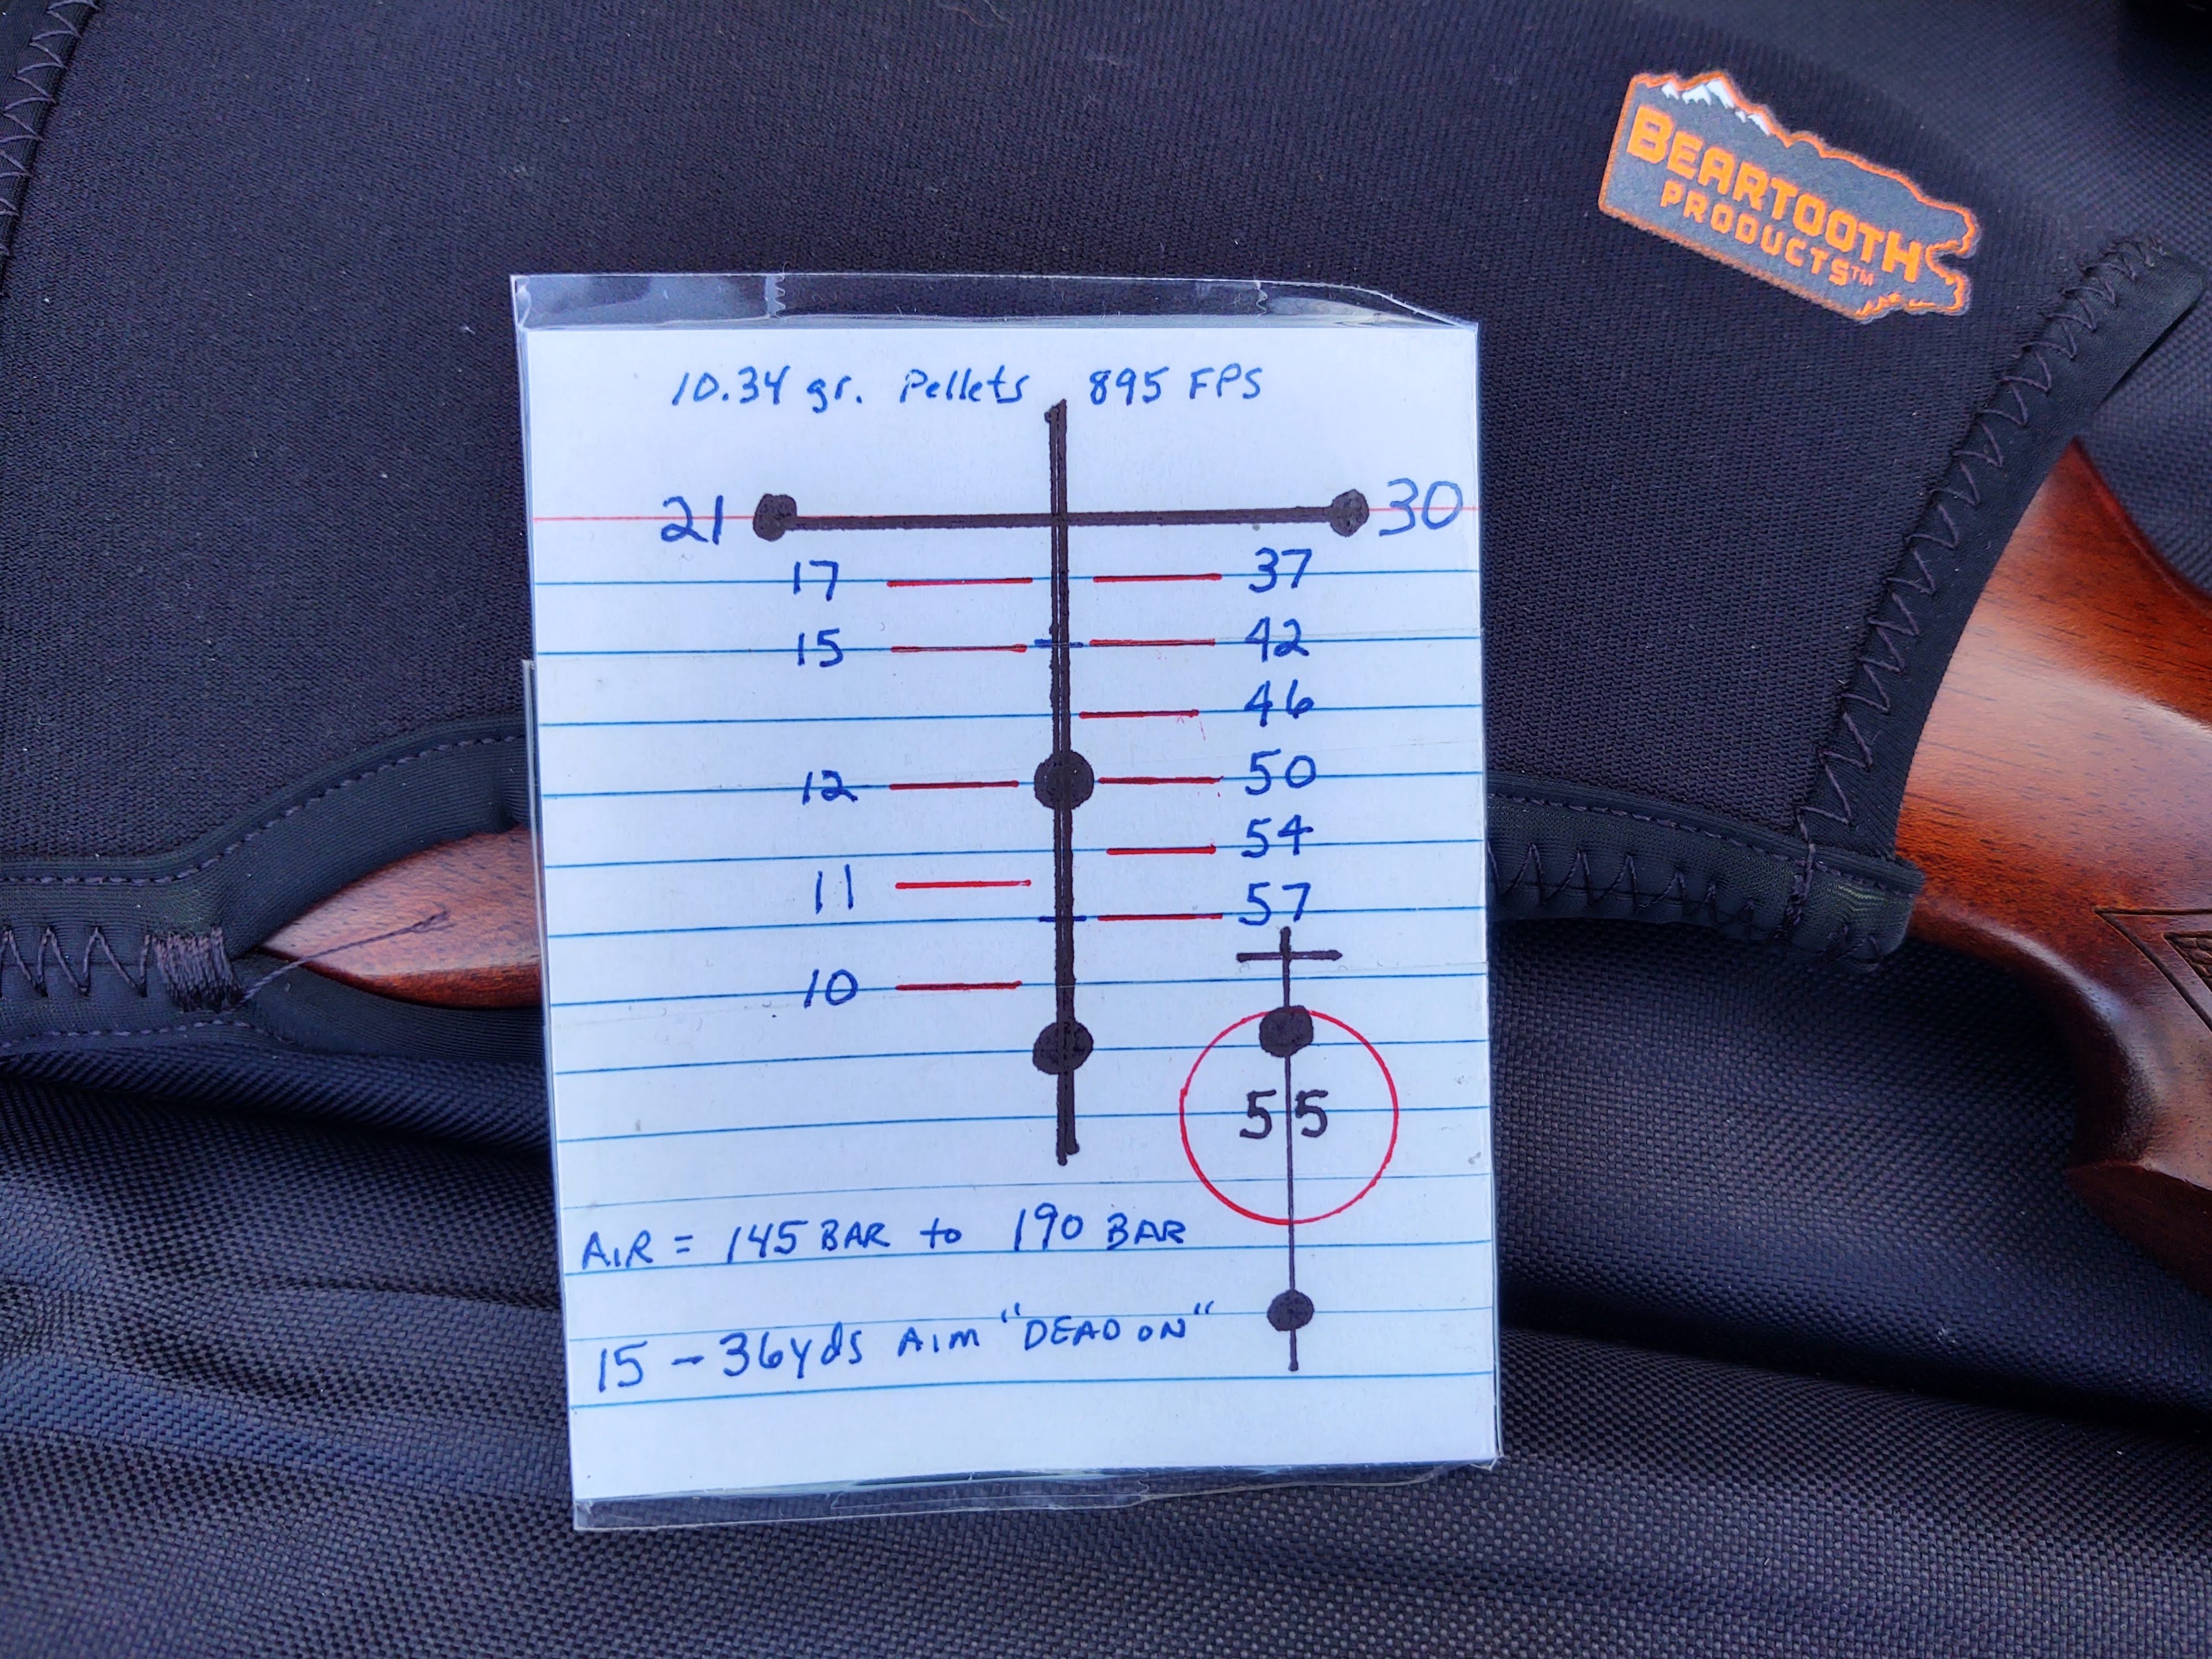 BEARTOOTH
PRODUCTS™
10.34 gr. Pellets 895 FPS
21 30
17 37
15 42
46
12 50
54
11 57
10
55
AIR = 145 BAR to 190 BAR
15 - 36yds AIM "DEAD ON"